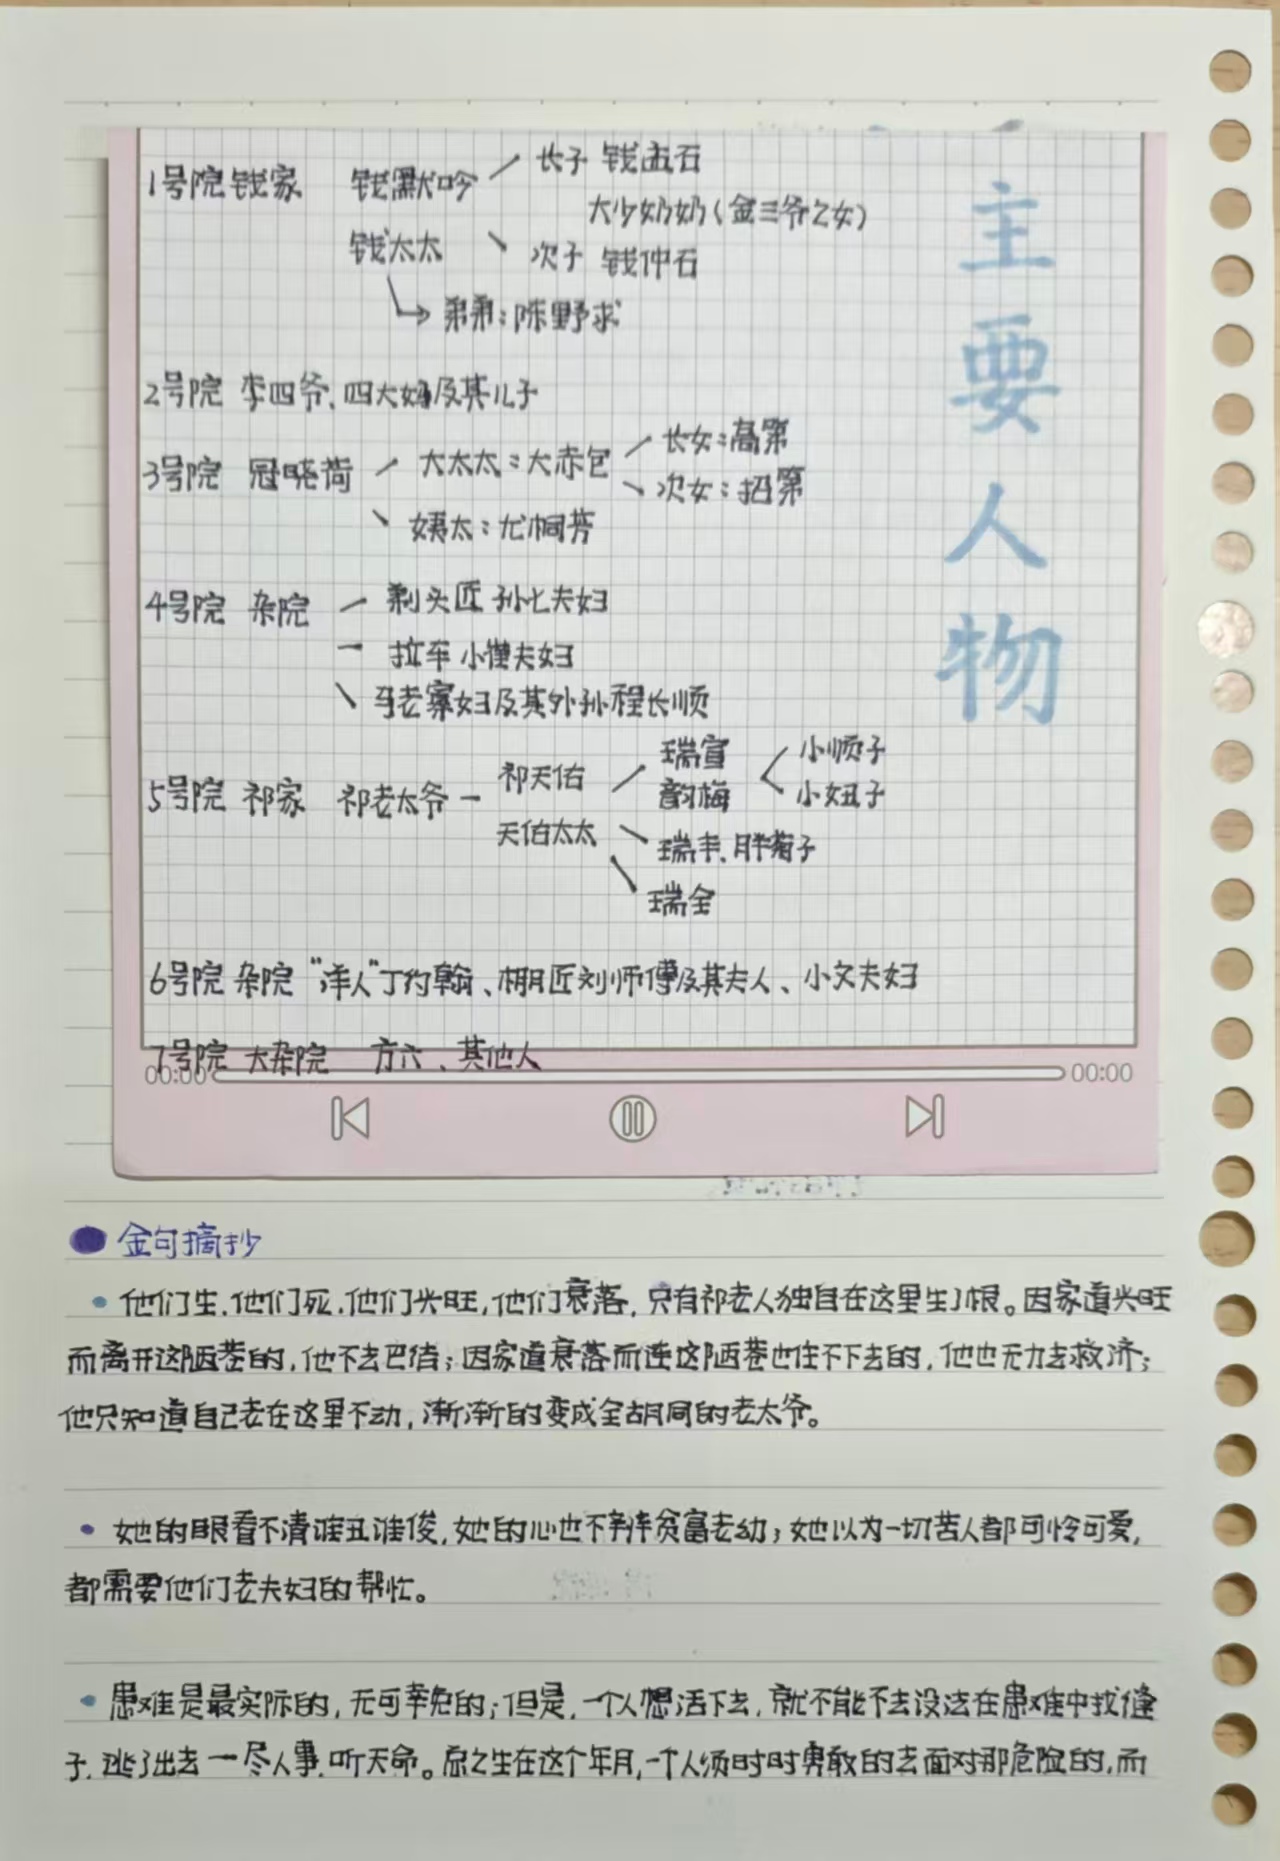 主要人物
1号院 钱家 钱默吟 长子 钱孟石
大少奶奶(金三爷之女)
钱太太 次子 钱仲石
弟弟:陈野求
2号院 李四爷、四大妈及其儿子
3号院 冠晓荷 大太太:大赤包 长女:高第
次女:招弟
姨太:尤桐芳
4号院 杂院 剃头匠 孙七夫妇
拉车 小崔夫妇
马老寡妇及其外孙程长顺
5号院 祁家 祁老太爷 祁天佑 瑞宣 小顺子
韵梅 小妞子
天佑太太 瑞丰、胖菊子
瑞全
6号院 杂院 “洋人”丁约翰、棚匠刘师傅及其夫人、小文夫妇
7号院 大杂院 方六、其他人
00:00 00:00
金句摘抄
他们生,他们死,他们兴旺,他们衰落,只有祁老人独自在这里生了根。因家道兴旺
而离开这陋巷的,他不去巴结;因家道衰落而连这陋巷也住不下去的,他也无力去救济;
他只知道自己老在这里不动,渐渐的变成全胡同的老太爷。
她的眼看不清谁丑谁俊,她的心也不辨贫富老幼;她以为一切苦人都可怜可爱,
都需要他们老夫妇的帮忙。
患难是最实际的,无可幸免的;但是,一个人想活下去,就不能不去设法在患难中找缝
子,逃了出去—尽人事,听天命。总之生在这个年月,一个人须时时勇敢的去面对那危险的,而